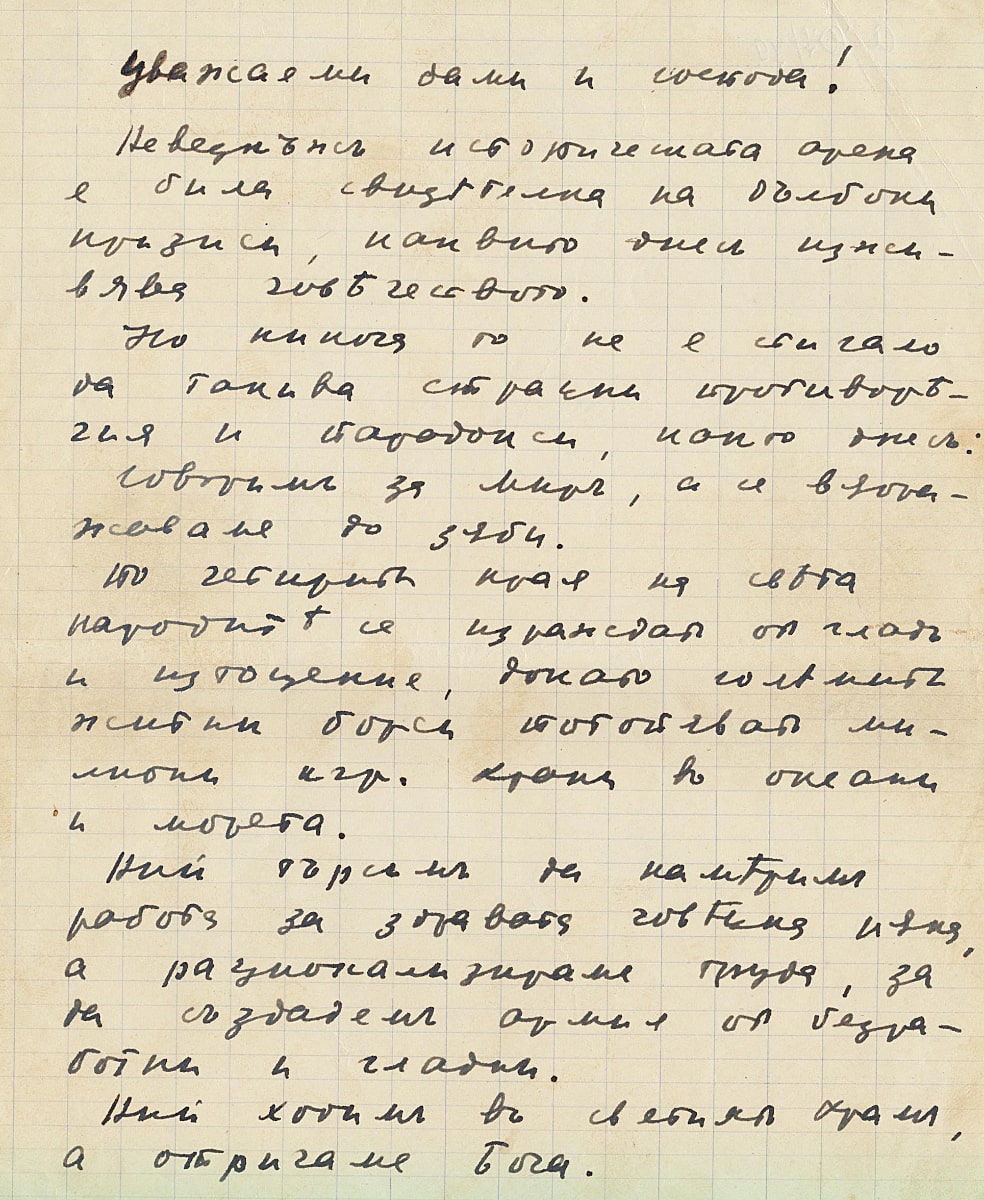 Уважаеми дами и господа!
Неведнъжъ историческата арена
е била свидѣтелка на дълбоки
кризиси, каквито днесъ изжи-
вява човѣчеството.
Но никога то не е стигало
до такива страшни противорѣ-
чия и парадокси, както днесъ:
Говоримъ за миръ, а се въора-
жаваме до зѫби.
По четирите края на свѣта
народитѣ се израждатъ отъ гладъ
и изтощение, докато голѣмите
житни борси потопяватъ ми-
лиони кгр. храни въ океани
и морета.
Ний търсимъ да намѣримъ
работа за здравата човѣшка рѫка,
а рационализираме труда, за
да създадемъ армия отъ безра-
ботни и гладни.
Ний ходимъ въ светия храмъ,
а отричаме Бога.